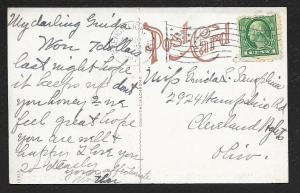 My darling Gueda
Won 1 dollar
last night hope
it keeps up dont
you honey we
feel great hope
you are well &
happy. I love you
so dearly yours
Post Card
Miss Gueda
2924 Hampshire Rd
Cleveland Hgts
Ohio.